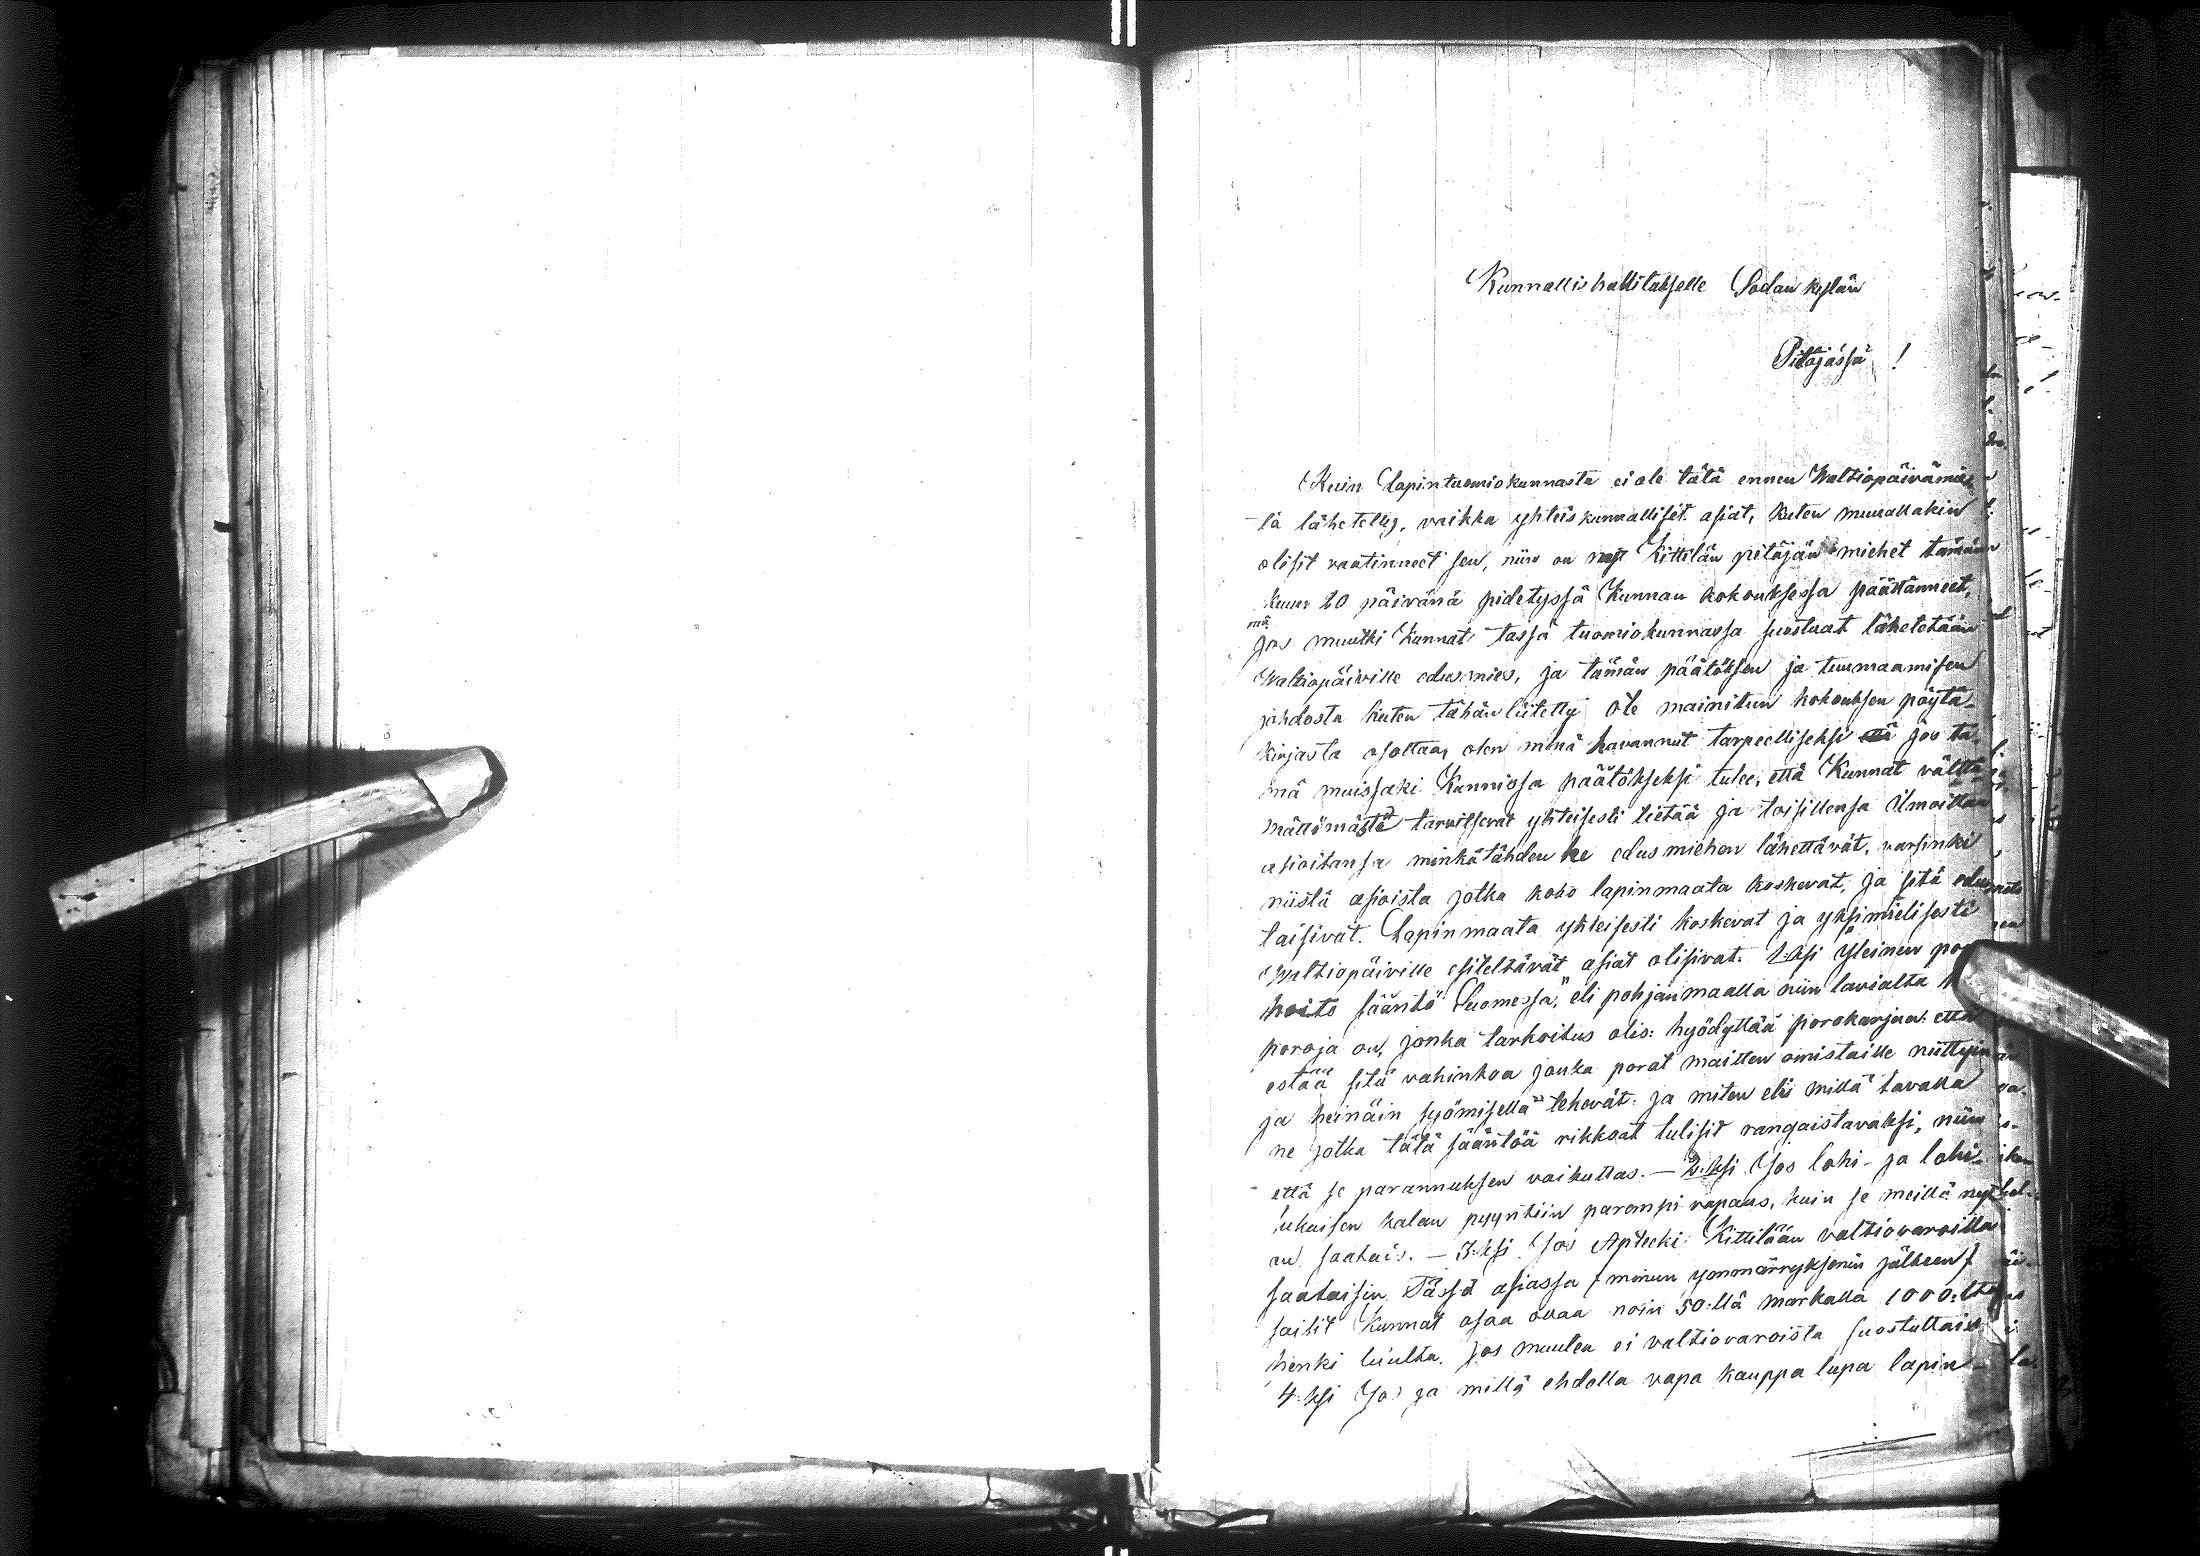 Kunnallishallitukselle Sodankylän
Pitäjässä !
Kuin Lapintuomiokunnasta ei ole tätä ennen Waltiopäivämies
tä lähetetty, vaikka yhteiskunnalliset asiat, kuten muuallakin
olisit vaatinneet sen, niin on nyt Kittilän pitäjän miehet tämän
kuun 20 päivänä pidetyssä Kunnan kokouksessa päättänneet,
jos muutki Kunnat tässä tuomiokunnassa suostuat lähetetään
Waltiopäiville edusmies, ja tämän päätöksen ja tuumaamisen
johdosta kuten tähän liitetty ote mainitun kokouksen pöytä-
kirjasta osottaa, olen minä havannut tarpeelliseksi että jos tä-
mä muissaki Kunnissa päätökseksi tulee, että Kunnat vältt
mättömästä tarvitsevat yhteisesti tietää ja toisillensa ilmoittaa
asioitansa minkätähden he edusmiehen lähettävät, varsinki
niistä asioista jotka koko lapinmaata koskevat, ja sitä
taisivat. Lapinmaata yhteisesti koskevat ja yksimielisesti
Waltiopäiville esiteltävät asiat olisivat. 1:ksi Yleinen
hoito sääntö Suomessa," eli pohjanmaalla niin lavialta
poroja on, jonka tarkoitus olis: hyödyttää porokarjaa: että
estää sitä vahinkoa jonka porot maitten omistaille niittyin
ja heinäin syömisellä tehevät: ja miten eli millä tavalla
ne jotka tätä sääntöä rikkoat tulisit rangaistavaksi, niin
että se parannuksen vaikuttas. — 2:ksi Jos lohi- ja lohi-
lukuisen kalan pyyntiin parempi vapaus, kuin se meillä nyt
on saatais. — 3:ksi Jos Apteeki Kittilään valtiovaroilla
saataisiin. Tässä asiassa / minun ymmärrykseniu jälkeen /
saisit Kunnat osaa ottaa noin 50:llä markalla 1000:lta
henki luulta. jos muuten ei valtiovaroista suostuttais
4:ksi Jos ja millä ehdolla vapa kauppa lupa lapin-